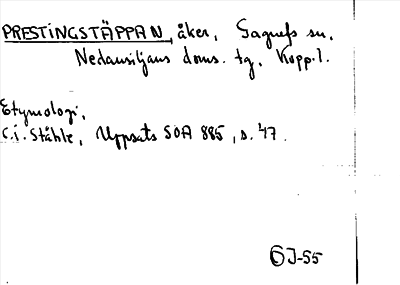 PRESTINGSTÄPPAN, åker, Gagnefs sn,
Nedansiljans doms. tg, Kopp.l.
Etymologi,
C.i. Ståhle, Uppsats SOA 885, s. 47.
⑥J-55